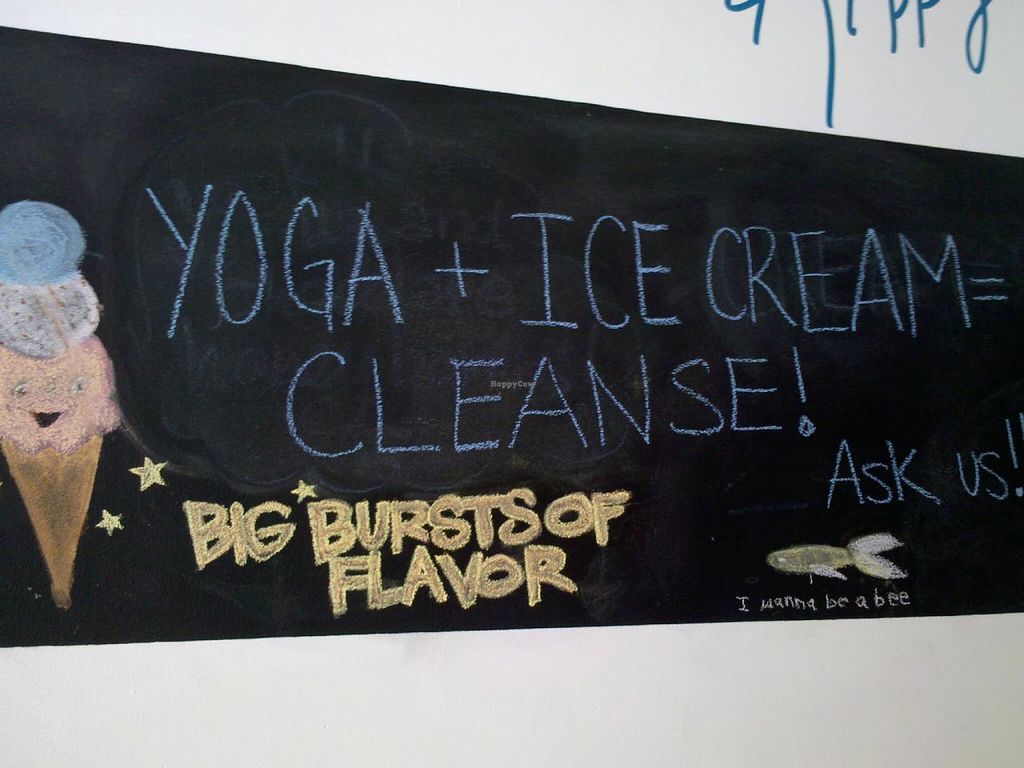 YOGA + ICE CREAM =
CLEANSE!
HappyCow
ASK US!!
BIG BURSTS OF
FLAVOR
I wanna be a bee